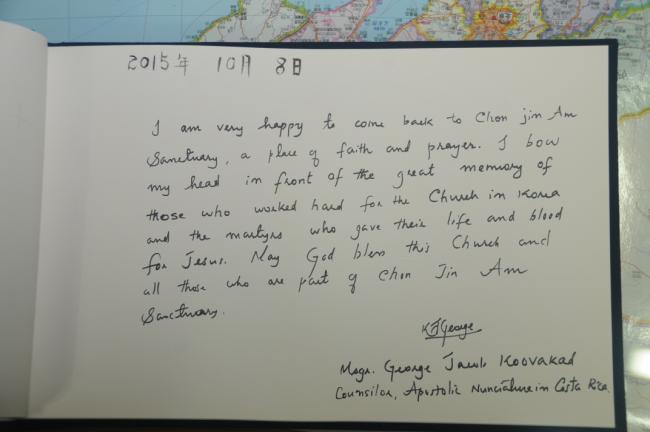 2015年 10月 8日
I am very happy to come back to Chon jin Am
Sanctuary, a place of faith and prayer. I bow
my head in front of the great memory of
those who worked hard for the Church in Korea
and the martyrs who gave their life and blood
for Jesus. May God bless this Church and
all those who are part of Chon Jin Am
Sanctuary.
KJGeorge
Msgr. George Jacob Koovakad
Counsilor, Apostolic Nunciature in Costa Rica.